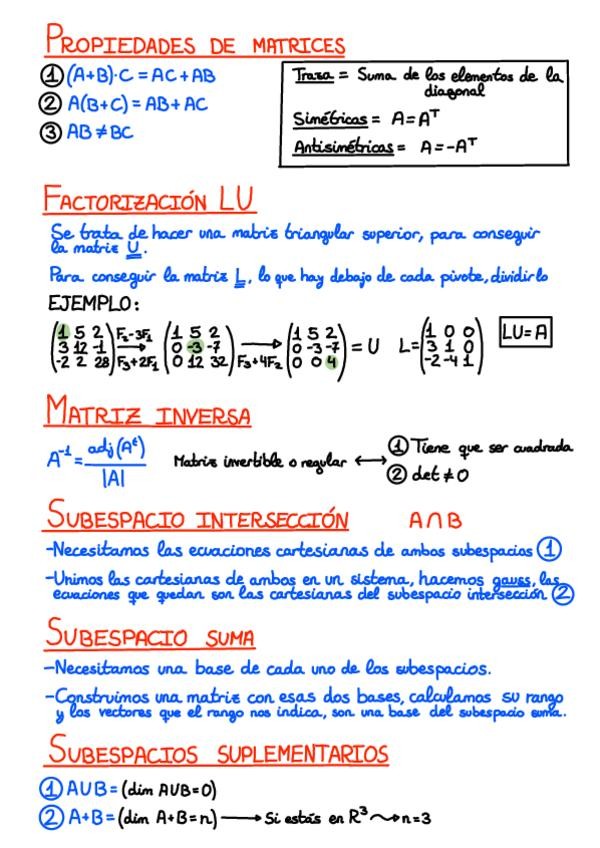 PROPIEDADES DE MATRICES
① (A+B)·C = AC + AB
② A(B+C) = AB + AC
③ AB ≠ BC
Traza = Suma de los elementos de la
diagonal
Simétricas = A=A^T
Antisimétricas = A=-A^T
FACTORIZACIÓN LU
Se trata de hacer una matriz triangular superior, para conseguir
la matriz U.
Para conseguir la matriz L, lo que hay debajo de cada pivote, dividirlo
EJEMPLO:
(1 5 2) F₂-3F₁ (1 5 2) (1 5 2) (1 0 0)
(3 12 -1) → (0 -3 -7) → (0 -3 -7) = U L= (3 1 0) LU=A
(-2 2 28) F₃+2F₁ (0 12 32) F₃+4F₂ (0 0 4) (-2 -4 1)
MATRIZ INVERSA
A⁻¹ = adj(Aᵗ) / |A|
Matriz invertible o regular ⟷ ① Tiene que ser cuadrada
② det ≠ 0
SUBESPACIO INTERSECCIÓN A∩B
-Necesitamos las ecuaciones cartesianas de ambos subespacios ①
-Unimos las cartesianas de ambos en un sistema, hacemos gauss, las
ecuaciones que quedan son las cartesianas del subespacio intersección. ②
SUBESPACIO SUMA
-Necesitamos una base de cada uno de los subespacios.
-Construimos una matriz con esas dos bases, calculamos su rango
y los vectores que el rango nos indica, son una base del subespacio suma.
SUBESPACIOS SUPLEMENTARIOS
① AUB = (dim AUB=0)
② A+B = (dim A+B=n) → Si estás en R³ ⤳ n=3